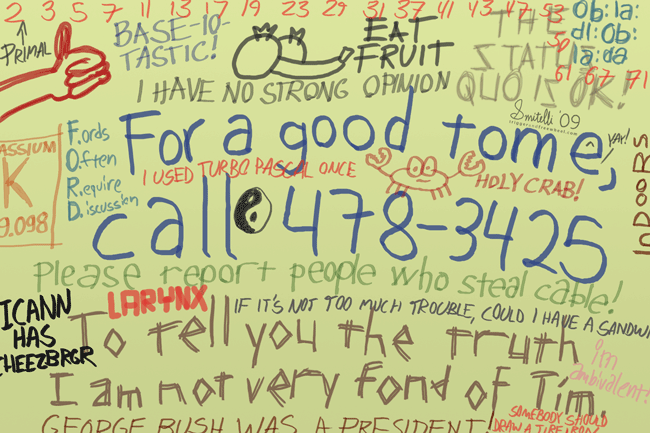 2 3 5 7 11 13 17 19 23 29 31 37 41 43 47 53
59
61 67 71
PRIMAL
BASE-10-
TASTIC!
EAT
FRUIT
THE
STATUS
QUO IS OK!
Ob·la·
di·Ob·
la·da
I HAVE NO STRONG OPINION
Smitelli '09
ASSIUM
K
9.098
F.ords
O.ften
R.equire
D.iscussion
For a good tome,
YAY!
I USED TURBO PASCAL ONCE
HOLY CRAB!
INDOORS
call 478-3425
Please report people who steal cable!
ICANN
HAS
CHEEZBRGR
LARYNX
IF IT'S NOT TOO MUCH TROUBLE, COULD I HAVE A SANDWI
To tell you the truth
I am not very fond of Tim.
i'm
ambivalent!
GEORGE BUSH WAS A PRESIDENT!
SOMEBODY SHOULD
DRAW A